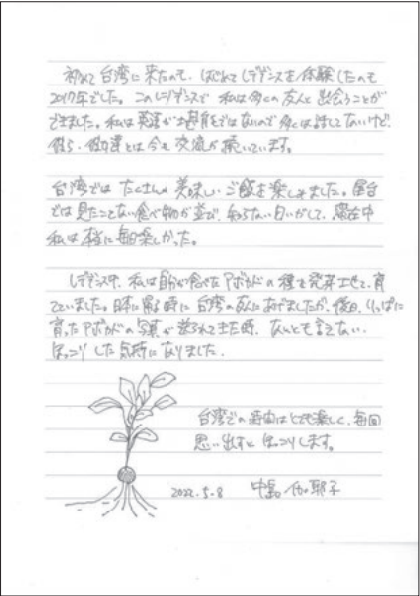 初めて台湾に来たのも、はじめてレジデンスを体験したのも
2017年でした。このレジデンスで私は多くの友人と出会うことが
できました。私は英語が堪能ではないので多くは話してないけど、
彼ら・彼女達とは今も交流が続いています。
台湾ではたくさんの美味しいご飯を楽しみました。屋台
では見たことない食べ物が並び、知らない匂いがして、滞在中
私は本当に毎日楽しかった。
レジデンス中、私は自分が食べたアボカドの種を発芽させて、育
てていました。日本に帰る時に台湾の友人にあげましたが、後日、りっぱに
育ったアボカドの写真が送られてきた時、なんとも言えない
ほっこりした気持になりました。
台湾での時間はとても楽しく、毎回
思い出すとほっこりします。
2022.5.8 中島 伽耶子